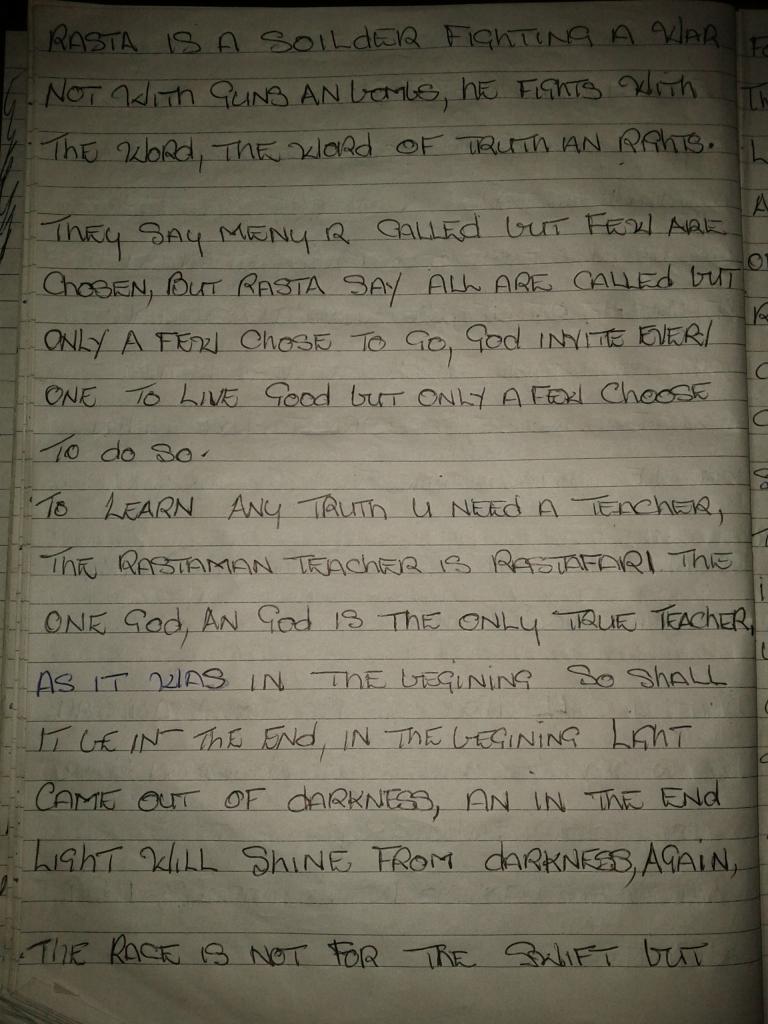 RASTA IS A SOILDER FIGHTING A WAR
NOT WITH GUNS AN bombs, HE FIGHTS WITH
THE WORD, THE WORD OF TRUTH AN RIGHTS.
THEY SAY MENY R CALLED bUT FEW ARE
CHOSEN, BUT RASTA SAY ALL ARE CALLED bUT
ONLY A FEW CHOSE TO GO, God INVITE EVERY
ONE TO LIVE Good bUT ONLY A FEW CHOOSE
TO do SO.
TO LEARN ANY TRUTH U NEED A TEACHER,
THE RASTAMAN TEACHER IS RASTAFARI THE
ONE God, AN God IS THE ONLY TRUE TEACHER,
AS IT WAS IN THE bEGINING SO SHALL
IT bE IN THE ENd, IN THE bEGINING LIGHT
CAME OUT OF dARKNESS, AN IN THE ENd
LIGHT WILL SHINE FROM dARKNESS, AGAIN,
THE RACE IS NOT FOR THE SWIFT bUT